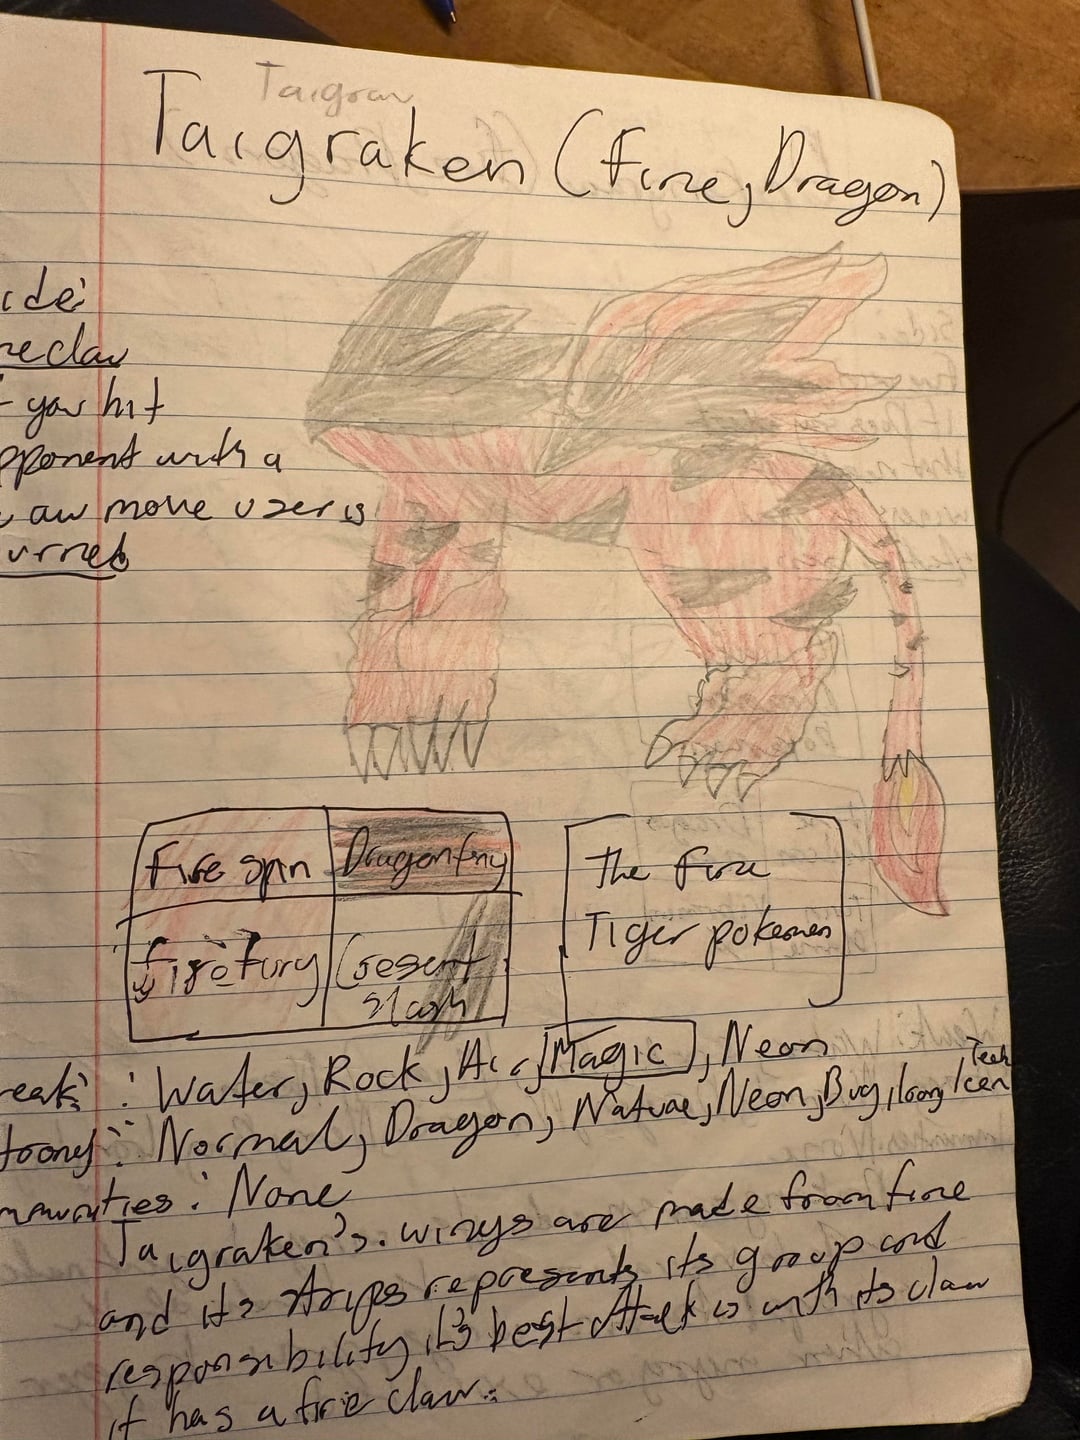 Taigrav
Taigraken (Fire, Dragon)
ide:
reclaw
f you hit
pponent with a
aw move user is
urned
Fire spin
Dragonfury
firefury
Cresent
slash
The fire
Tiger pokemon
reak: : Water, Rock, Air, Magic, Neon
Normal, Dragon, Nature, Neon, Bug, Icen
Tech
mmunities: None
Taigraken's. wings are made from fire
and its strips represents its group and
responsibility it's best Attack is with its claw
it has a fire claw.